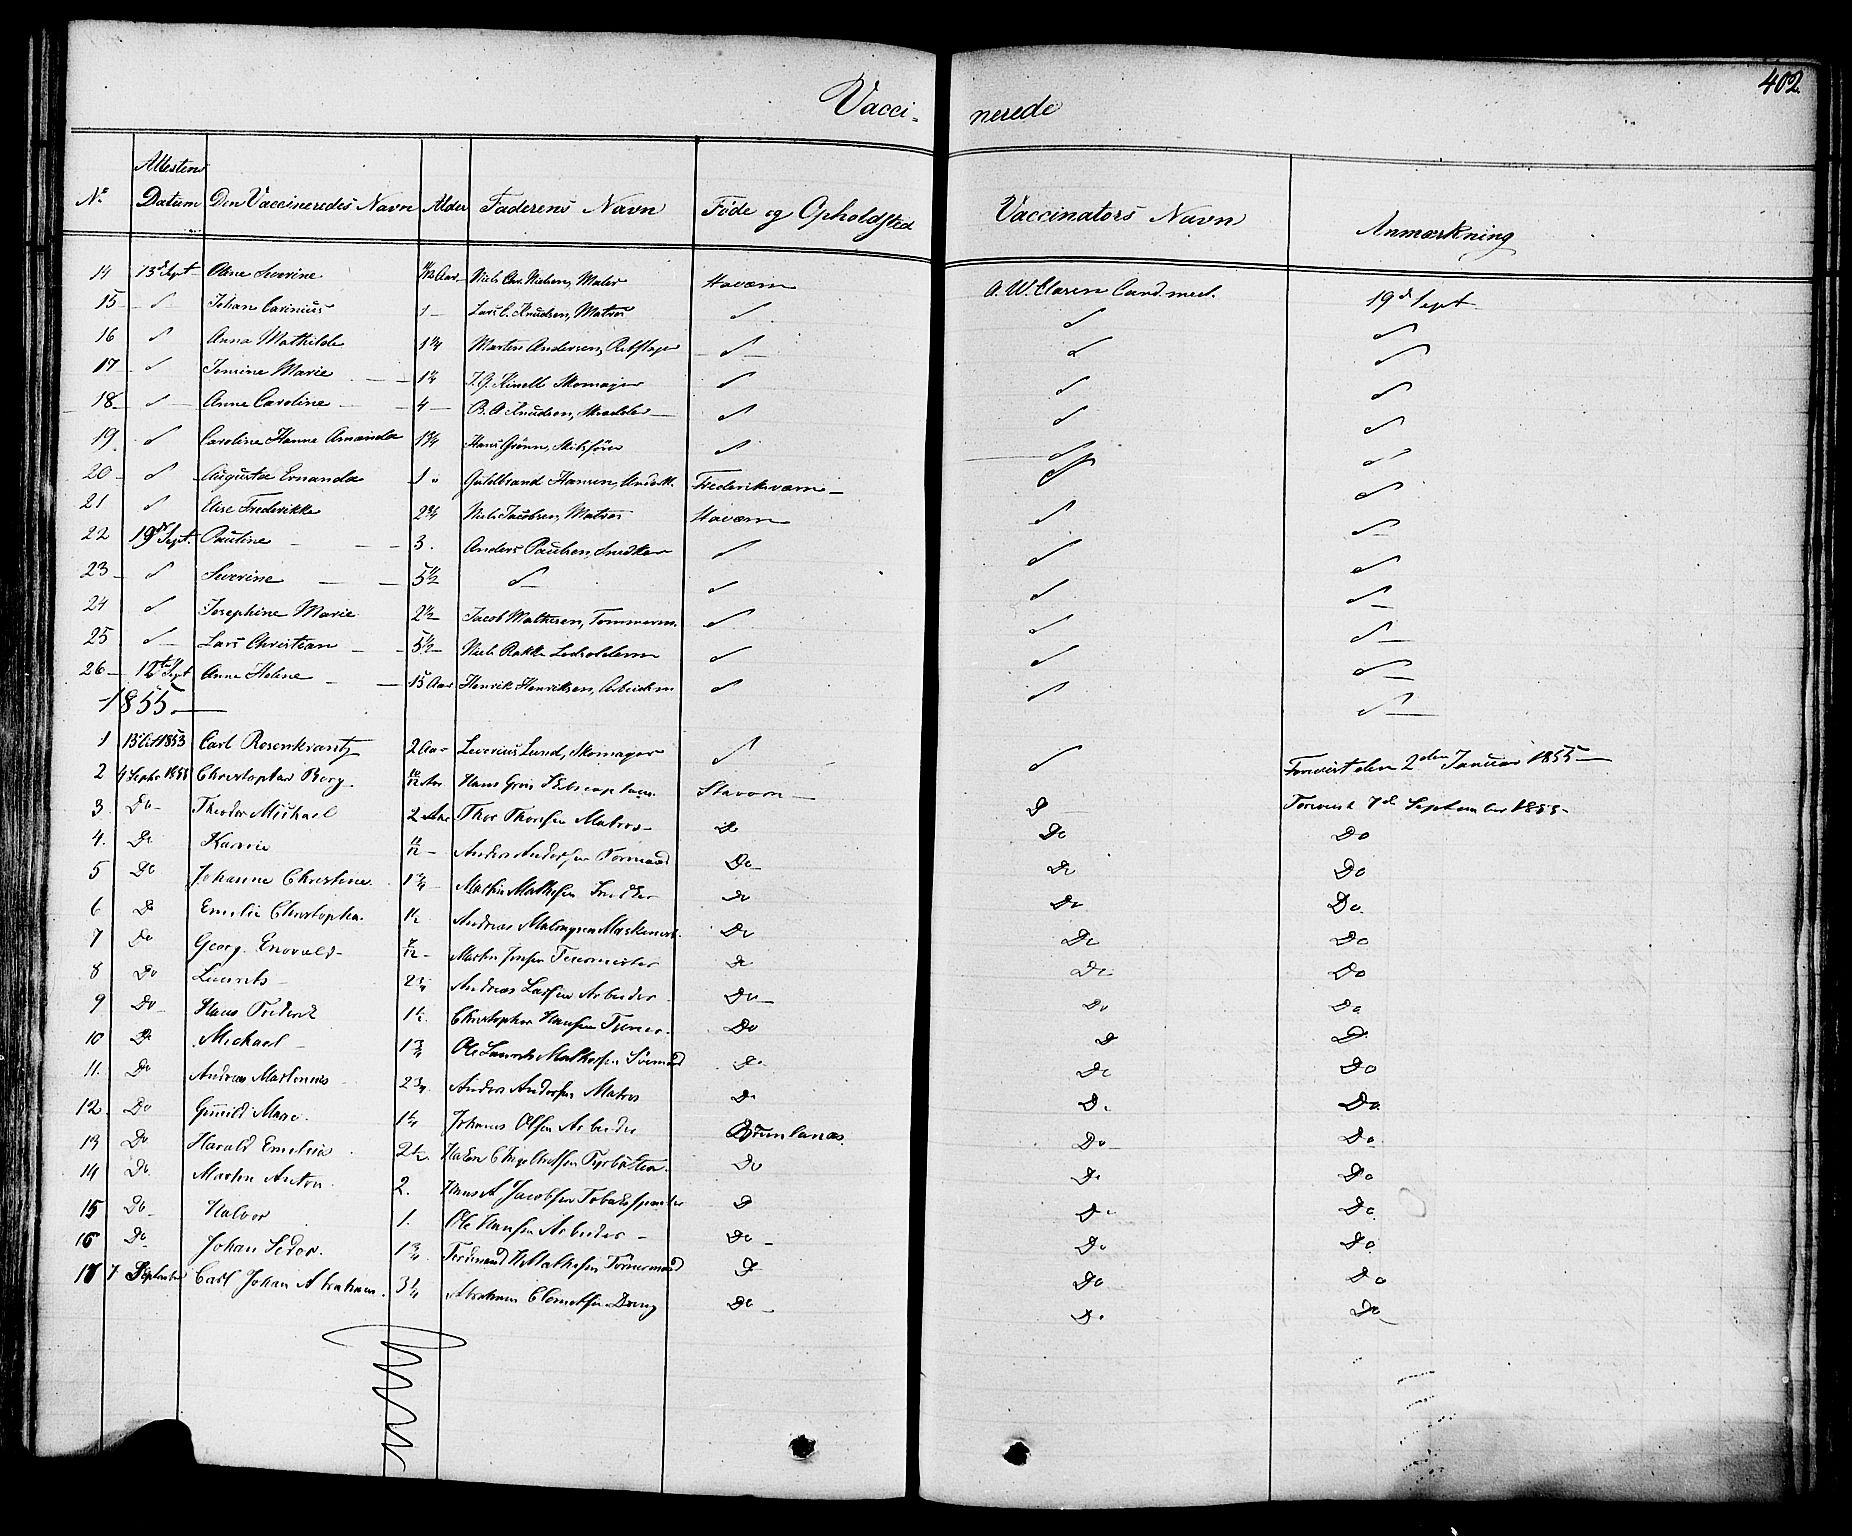 402.
Vacci- nerede
No Attestens Datum Den Vaccineredes Navn Alder Faderens Navn Føde og Opholdssted Vaccinators Navn Anmærkning
14 13d Sept Oline Severine Aar Niels Chr. Nielsen, Maler Stavern A. W. Claren Cand. med. 19d Sept
15 - Johan Carinius 1 - Lars C. Knudsen, Matros
16 Anna Mathilde 1¼ Marten Andersen, Rebslager
17 - Jensine Marie - 1¼ J. G. Skomager
18 - Anne Caroline - 4 - B. A. Knudsen, Skrædder -
19. Caroline Hanna Amanda 1¾ Hans Grønn, Skibsfører
20 - Augusta Ernanda 1 Guldbrand Hansen, Frederiksværn -
21 Elise Frederikke 2¾ Niels Jacobsen, Matros Stavern
22 19de Sept. Pauline - 3. Anders Paulsen, Snedker
23 - Severine - 5½
24 Josephine Marie 2½ - Jacob Mathesen, Tømmerm.
25 - Lars Christian - 5½ - Niels Bakke
26 - 12te Sept Anne Helene - 15 Aar Henrik Henriksen, Arbeidsm.
1855. -
1 13 Oct 1853 Carl Rosenkrantz 2 Aar - Severius Lund, Skomager Forevist den 2den Januar 1855 -
2 4 Septb 1855 Christopher Berg. 10/12 Aar Hans Grøn Skibscaptain Stavern - Forevist 7de September 1855 -
3. Do - Theodor Michael 2 Aar Thor Thorsen Matros - Do Do - Do
4. Do Karine 11/12 - Anders Andersen Tormand Do - Do Do
5 Do Johanne Christine. 1¾ - Martin Mathesen Snedker Do Do Do
6 Do Emilie Christopha. 1½ Andreas Do Do Do.
7 Do Georg Enevald - 7/12 - Martin Jensen Do Do Do
8 Do Laurits - 2¾ Andreas Larsen Arbeider Do - Do Do
9 Do - Hans Frederik 1½. Christopher Hansen Do Do Do
10 Do Michael - 1¾ Ole Laurits Mathesen Sömand Do Do Do
11. Do Andreas Martinius 2¾. Anders Andersen Matros Do Do Do
12. Do Gunild Marie. 1¼ Johannes Olsen Arbeider Brunlanæs. Do Do
13 Do Harald Emilius 2½. Do Do - Do
14 Do. Martin Anton. 2. Hans A Jacobsen Tobakspinder Do Do Do
15 Do - Halvor 1. Ole Hansen Arbeider - Do - Do Do
16 Do Johan Peder. 1¾. Ferdinand H Mathesen Tömmermand Do Do Do
17 7 September Carl Johan Abraham. 3¼ Abraham Clemetsen Dreng Do - Do Do